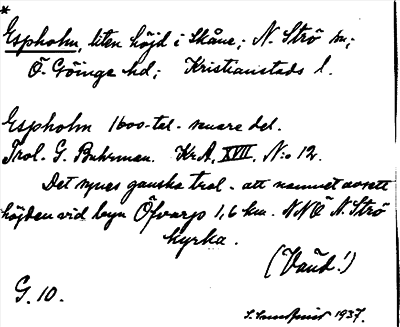 *
Espholm, liten höjd i Skåne; N. Strö sn;
Ö. Göinge hd; Kristianstads l.
Espholm 1600-tal - senare del.
Trol. G. Buhrman. Kr.A. XVII, N:o 12.
Det synes ganska trol. att namnet avsett
höjden vid byn Öfvarp 1,6 km. NNÖ N. Strö
kyrka.
(Vånd!)
G. 10.
1937.